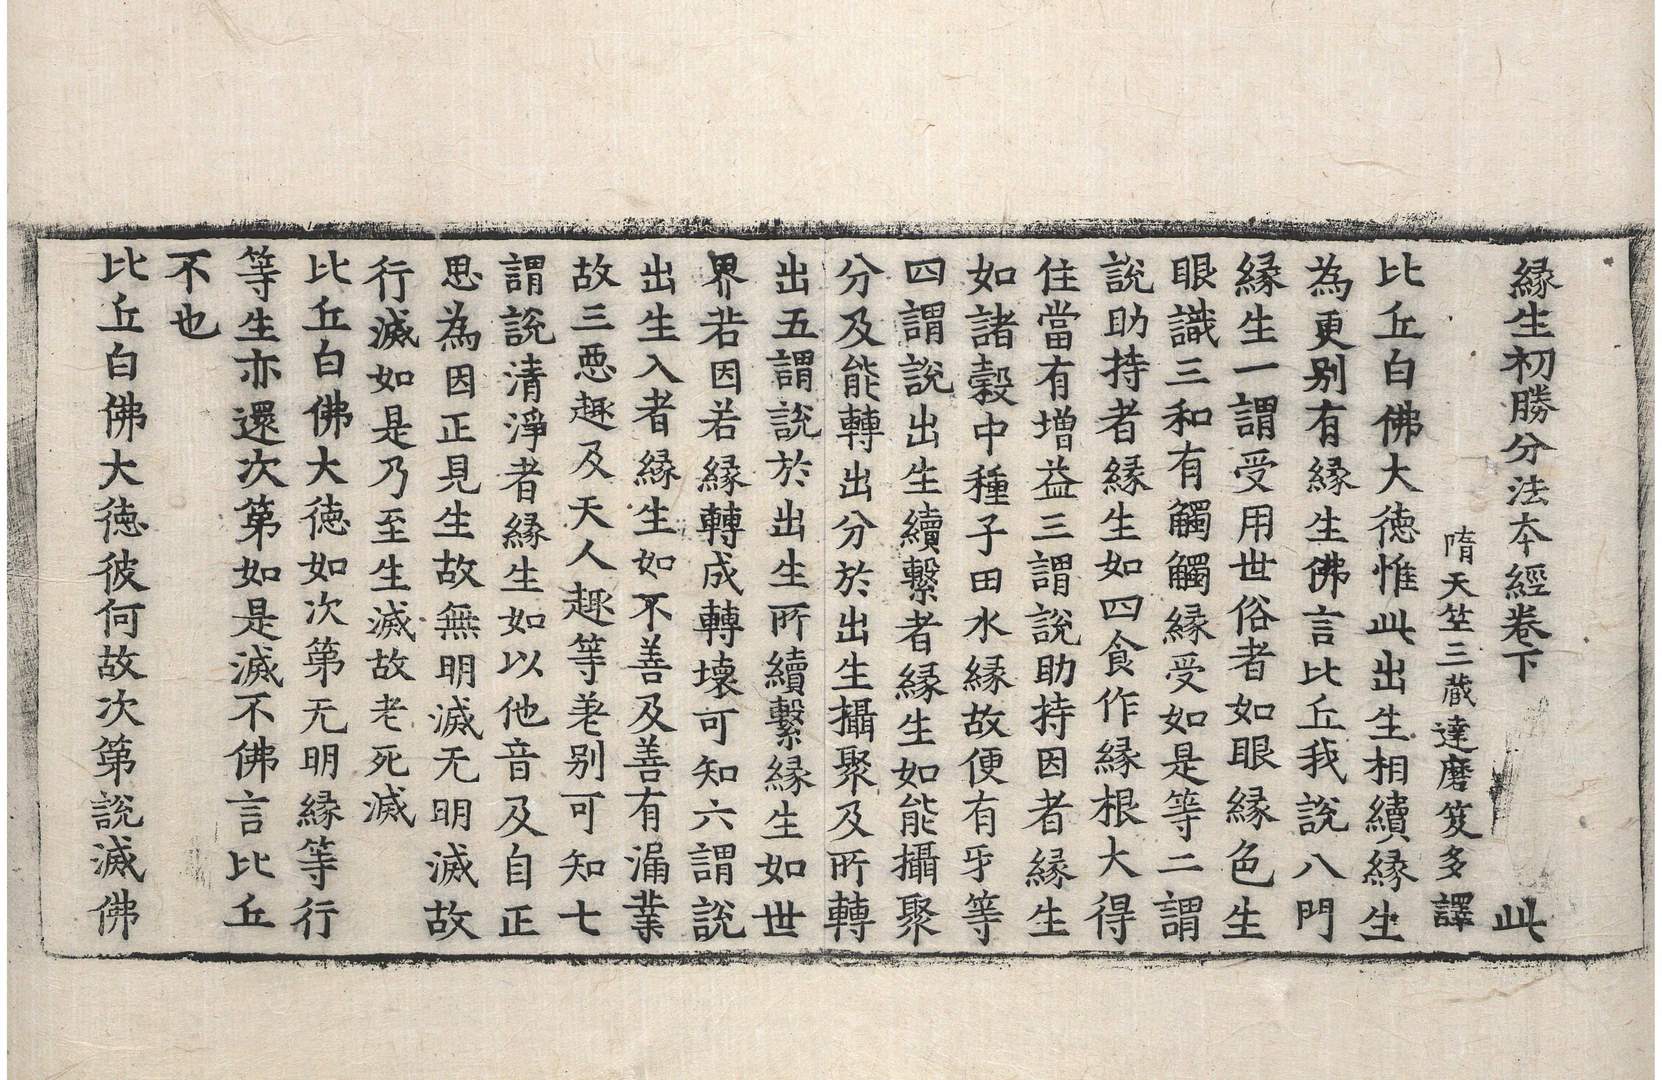 縁生初勝分法本經卷下 此
隋天竺三藏達磨笈多譯
比丘白佛大徳惟此出生相續縁生
為更别有縁生佛言比丘我說八門
縁生一謂受用世俗者如眼縁色生
眼識三和有觸觸縁受如是等二謂
說助持者縁生如四食作縁根大得
住當有增益三謂說助持因者縁生
如諸穀中種子田水縁故便有牙等
四謂說出生續繫者縁生如能攝聚
分及能轉出分於出生攝聚及所轉
出五謂說於出生所續繫縁生如世
界若因若縁轉成轉壞可知六謂說
出生入者縁生如不善及善有漏業
故三惡趣及天人趣等差别可知七
謂說清淨者縁生如以他音及自正
思為因正見生故無明滅无明滅故
行滅如是乃至生滅故老死滅
比丘白佛大徳如次第无明縁等行
等生亦還次第如是滅不佛言比丘
不也
比丘白佛大徳彼何故次第說滅佛